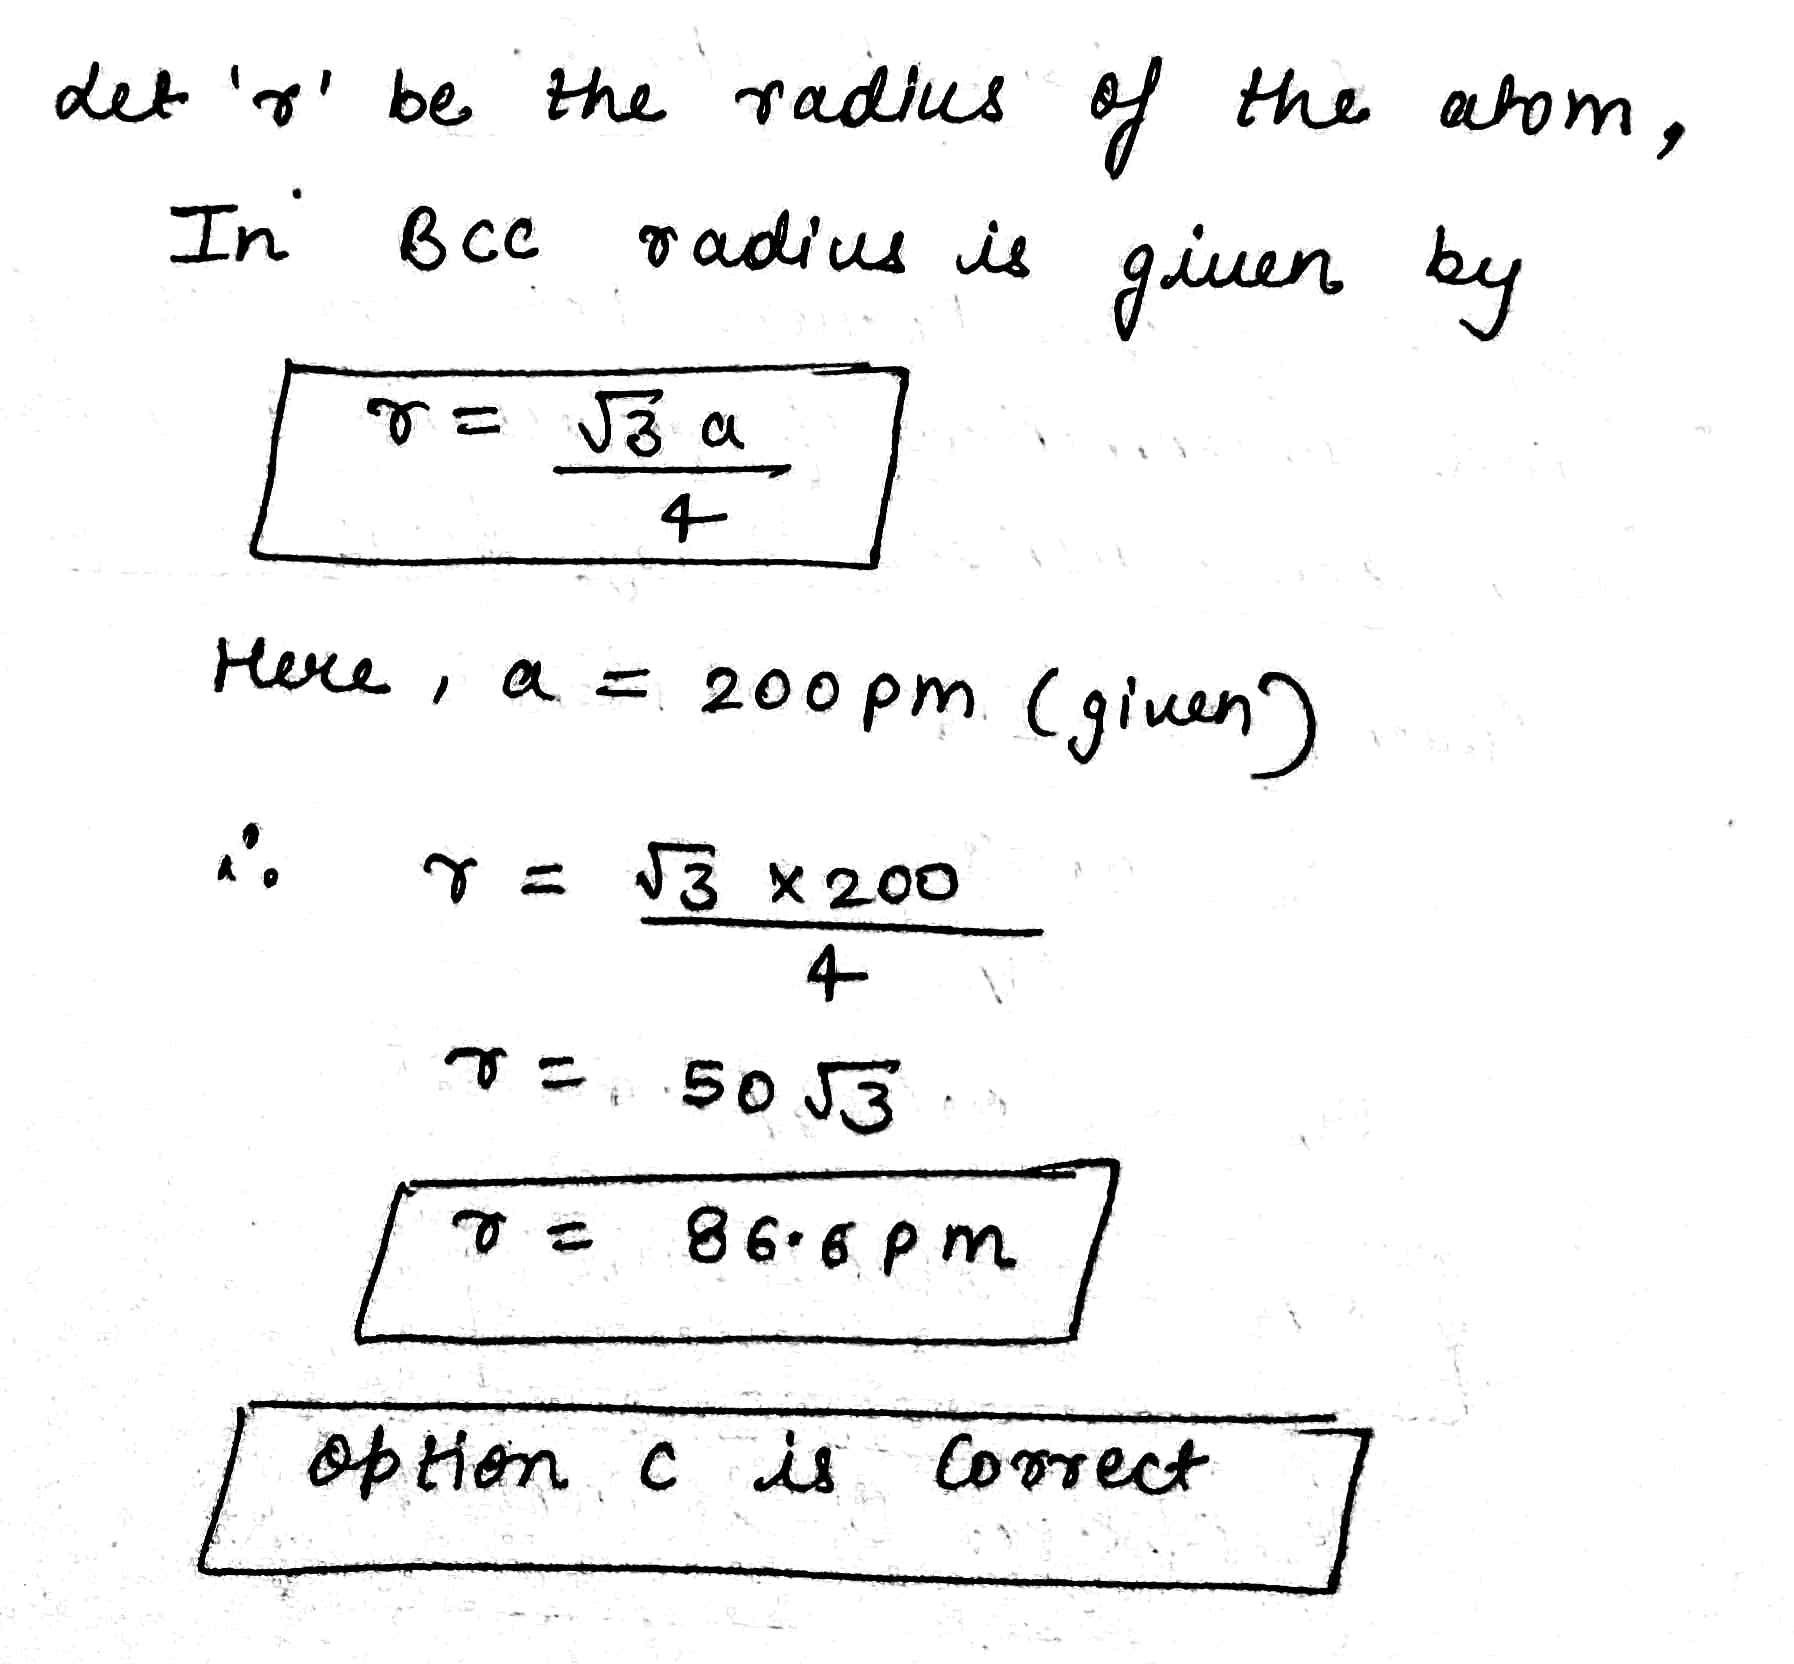 Let 'r' be the radius of the atom,
In BCC radius is given by
r = √3 a
4
Here, a = 200pm (given)
∴ r = √3 × 200
4
r = 50 √3
r = 86.6 pm
Option C is Correct